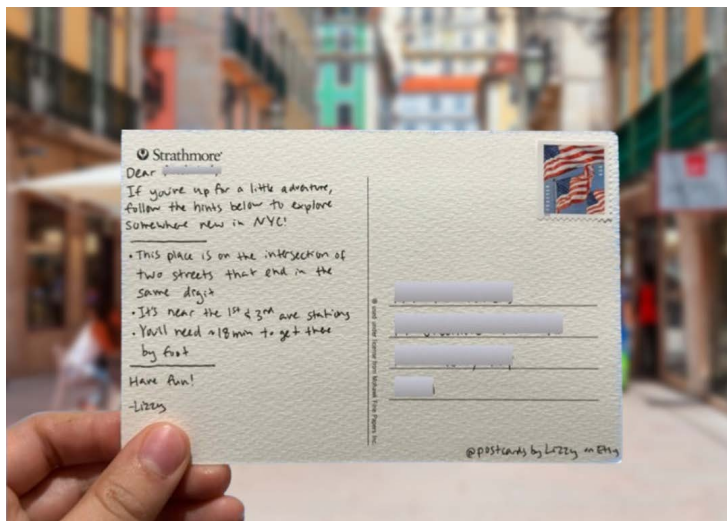 Strathmore®
Dear
If you're up for a little adventure,
follow the hints below to explore
somewhere new in NYC!
• This place is on the intersection of
two streets that end in the
same digit
• It's near the 1st & 3rd ave stations
• You'll need ~18min to get there
by foot
Have fun!
-Lizzy
© used under license from Mohawk Fine Papers Inc.
@postcards by Lizzy on Etsy